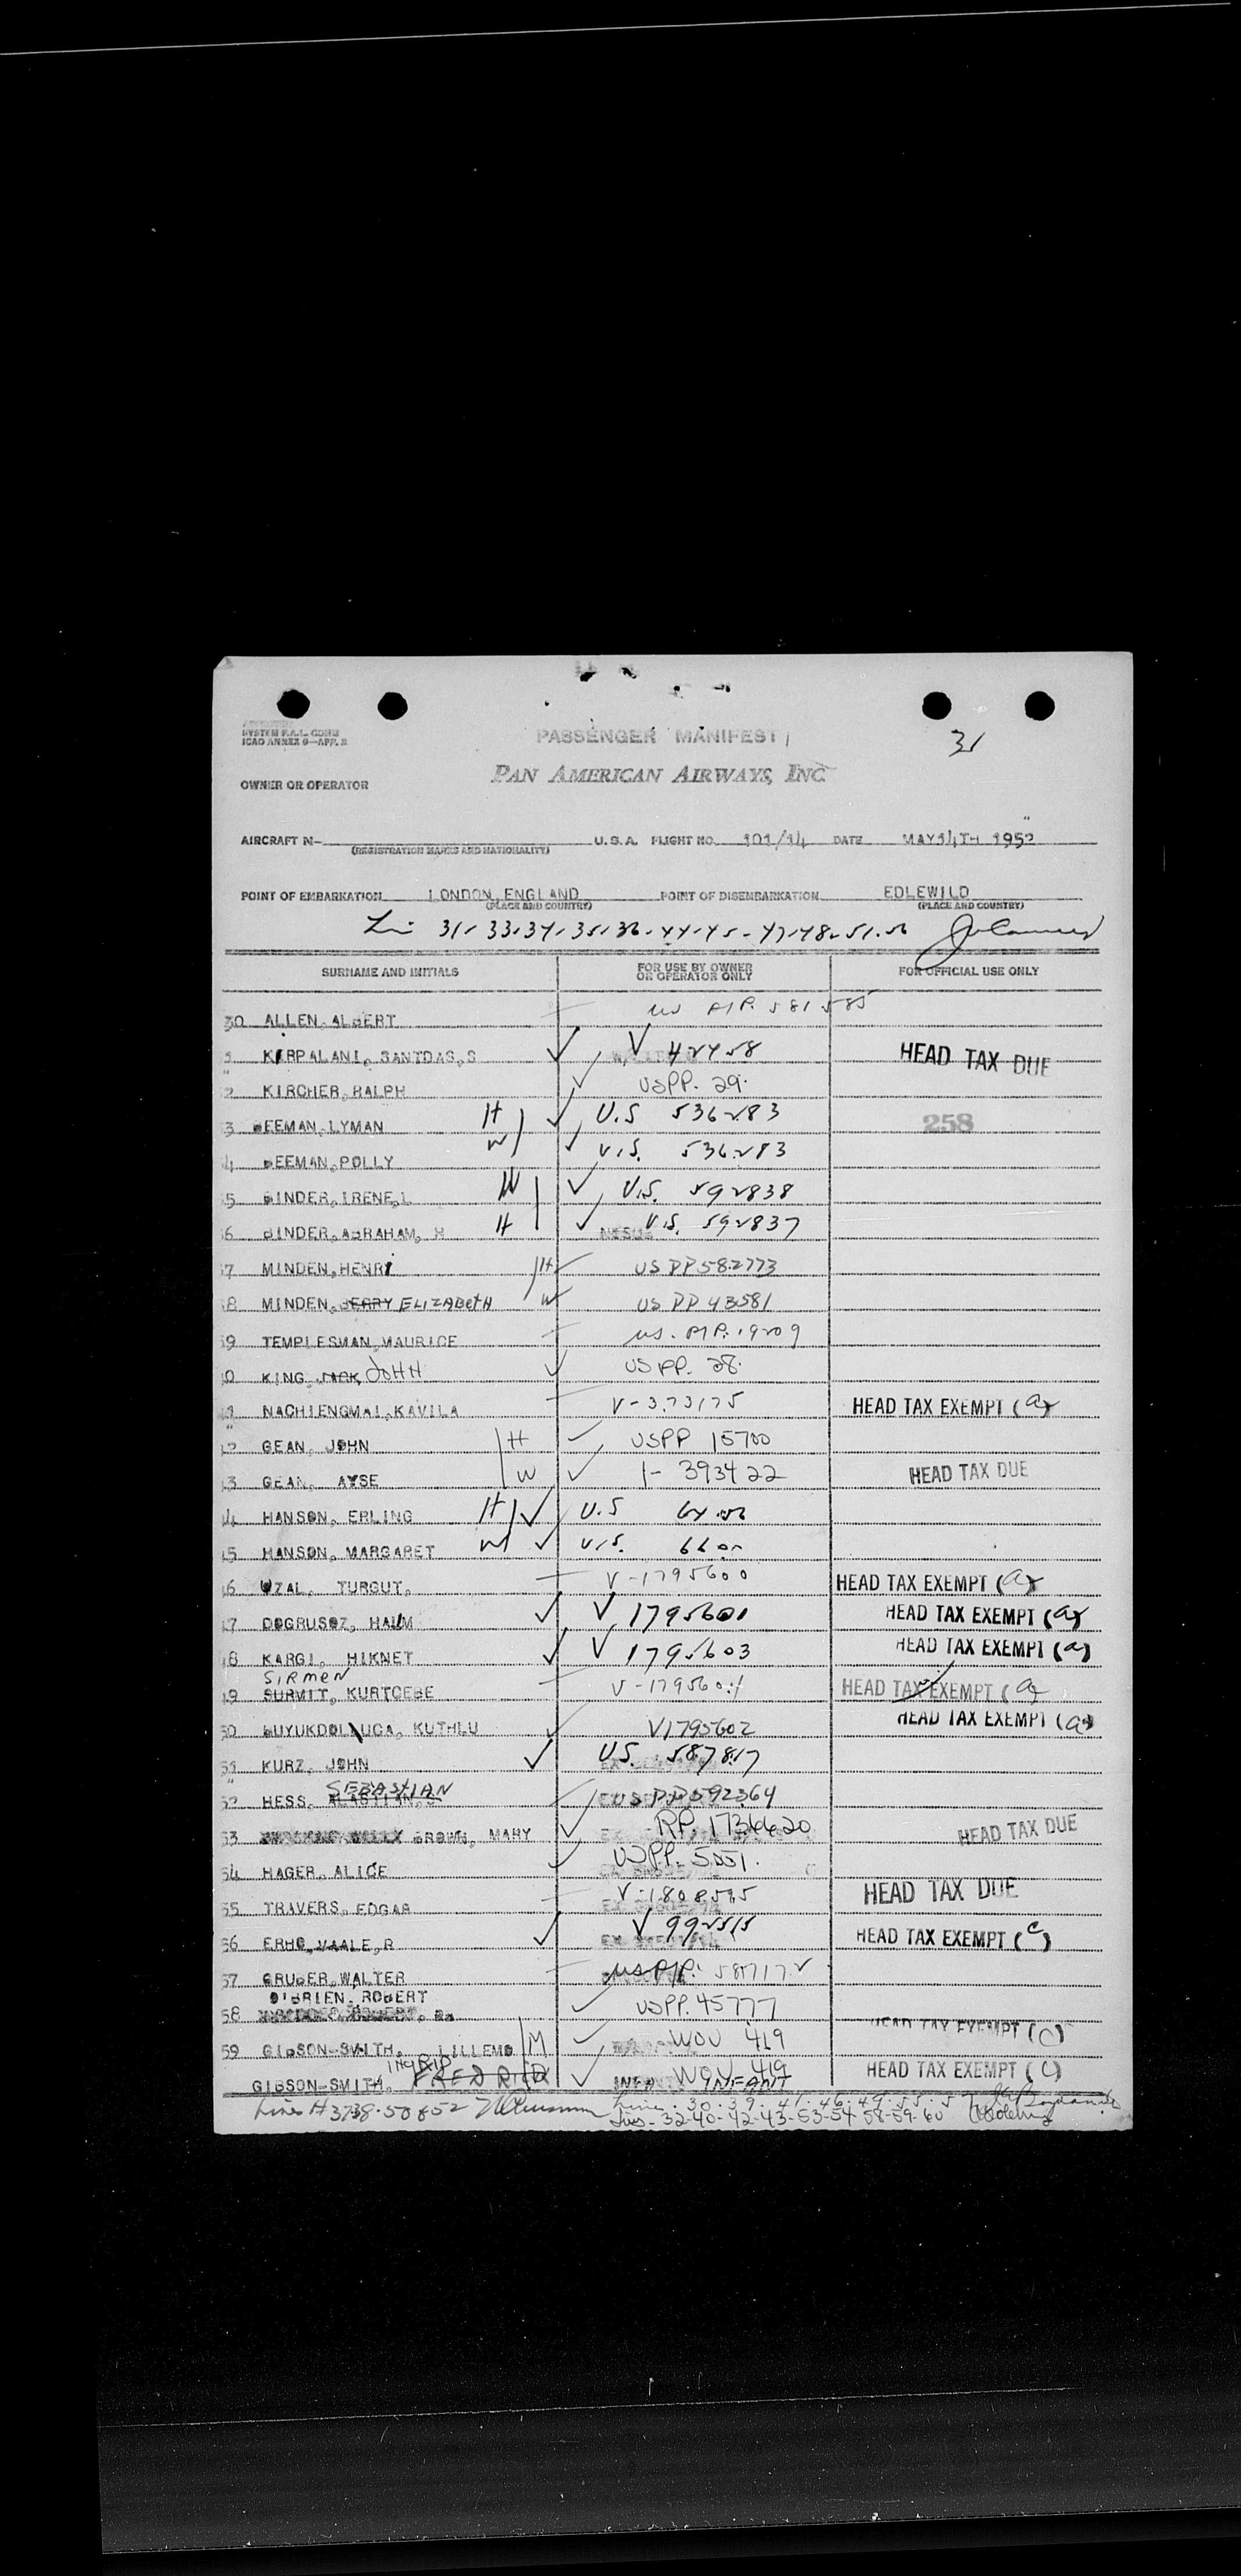 SYSTEM F.A.L. COMM
ICAO ANNEX 9—APP. 2
PASSENGER MANIFEST
31
PAN AMERICAN AIRWAYS, INC.
OWNER OR OPERATOR
AIRCRAFT N- U.S.A. FLIGHT NO. 101/14 DATE MAY 14TH 1952
(REGISTRATION MARKS AND NATIONALITY)
POINT OF EMBARKATION LONDON, ENGLAND POINT OF DISEMBARKATION EDLEWILD
(PLACE AND COUNTRY) (PLACE AND COUNTRY)
31-33-34-35-36-44-45-47-48-51-56
SURNAME AND INITIALS FOR USE BY OWNER OR OPERATOR ONLY FOR OFFICIAL USE ONLY
30 ALLEN, ALBERT US P/P. 581585
1 KIRPALANI, SANTDAS, S V 42458 HEAD TAX DUE
2 KIRCHER, RALPH USPP. 29.
3 BEEMAN, LYMAN H U.S 536283 258
4 BEEMAN, POLLY W U.S. 536283
5 BINDER, IRENE, L W U.S. 592838
6 BINDER, ABRAHAM, H H U.S. 592837
7 MINDEN, HENRI H US PP 582773
8 MINDEN, JERRY ELIZABETH W US PP 43581
9 TEMPLESMAN, MAURICE US. P/P. 19209
0 KING, JACK JOHN US PP. 28.
1 NACHIENGMAI, KAVILA V-373175 HEAD TAX EXEMPT (a)
2 GEAN, JOHN H USPP 15700
3 GEAN, AYSE W I-393422 HEAD TAX DUE
4 HANSON, ERLING H U.S
5 HANSON, MARGARET W U.S.
6 UZAL, TURGUT, V-1795600 HEAD TAX EXEMPT (a)
7 DOGRUSOZ, HALIM V 1795601 HEAD TAX EXEMPT (a)
8 KARGI, HIKNET V 1795603 HEAD TAX EXEMPT (a)
SIRMEN
9 SURMIT, KURTCEBE V-1795604 HEAD TAX EXEMPT (a)
50 BUYUKDOLLUCA, KUTHLU V1795602 HEAD TAX EXEMPT (a)
51 KURZ, JOHN U.S. 587817
SEBASTIAN
52 HESS, US PP 592364
53 BROWN, MARY RP. 1736620 HEAD TAX DUE
54 HAGER, ALICE USPP. 5051.
55 TRAVERS, EDGAR V-1808595 HEAD TAX DUE
56 ERHO, VAALE, R V 992515 HEAD TAX EXEMPT (c)
57 GRUBER, WALTER US P/P. 587172
O'BRIEN, ROBERT
58 USPP. 45777
HEAD TAX EXEMPT (C)
59 GIBSON-SMITH, LILLEMO M WOV 419
INGRID
GIBSON-SMITH, D WOV 419 INFANT HEAD TAX EXEMPT (C)
Lines # 37-38-50 & 52
Lines - 32-40-42-43-53-54-58-59-60